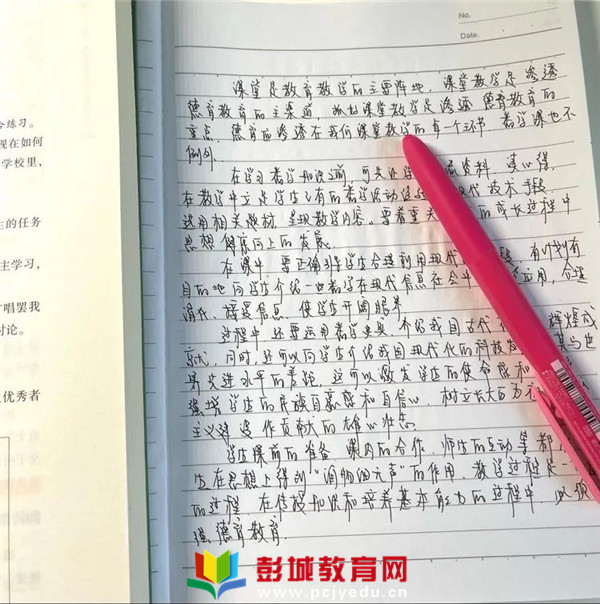 合练习。
现在如何
学校里,
生的任务
主学习,
盲唱罢我
讨论。
优秀者
No.
Date.
课堂是教育教学的主要阵地,课堂教学是渗透
德育教育的主渠道,课堂教学是渗透德育教育的
重点,德育应渗透在我们课堂教学的每一个环节,数学课也不
例外。
在学习数学知识前,可先让学 资料,谈心得
在教学中立足学生已有的数学活动 技术手段
选用相关题材,呈现教学内容。要着重关 的成长过程中
思想健康向上的发展。
在课中,要正确引导学生合理利用现代 ,有计划有
目的地向学生介绍一些数学在现代信息社会中 应用,合理
消化,接受信息,使学生开阔眼界。
过程中还要运用数学史实,介绍我国古代 辉煌成
就,同时,还可以向学生介绍我国现代化的科技 其与世
界先进水平的差距,这可以激发学生的使命感和
增强学生的民族自豪感和自信心,树立长大后为
主义建设作贡献的雄心壮志。
学生课前的准备,课内的合作,师生的互动等都
生在思想上得到“润物细无声”的作用,教学过程是一
的过程,在传授知识和培养基本能力的过程中,必须
强德育教育.
彭城教育网
www.pcjyedu.cn